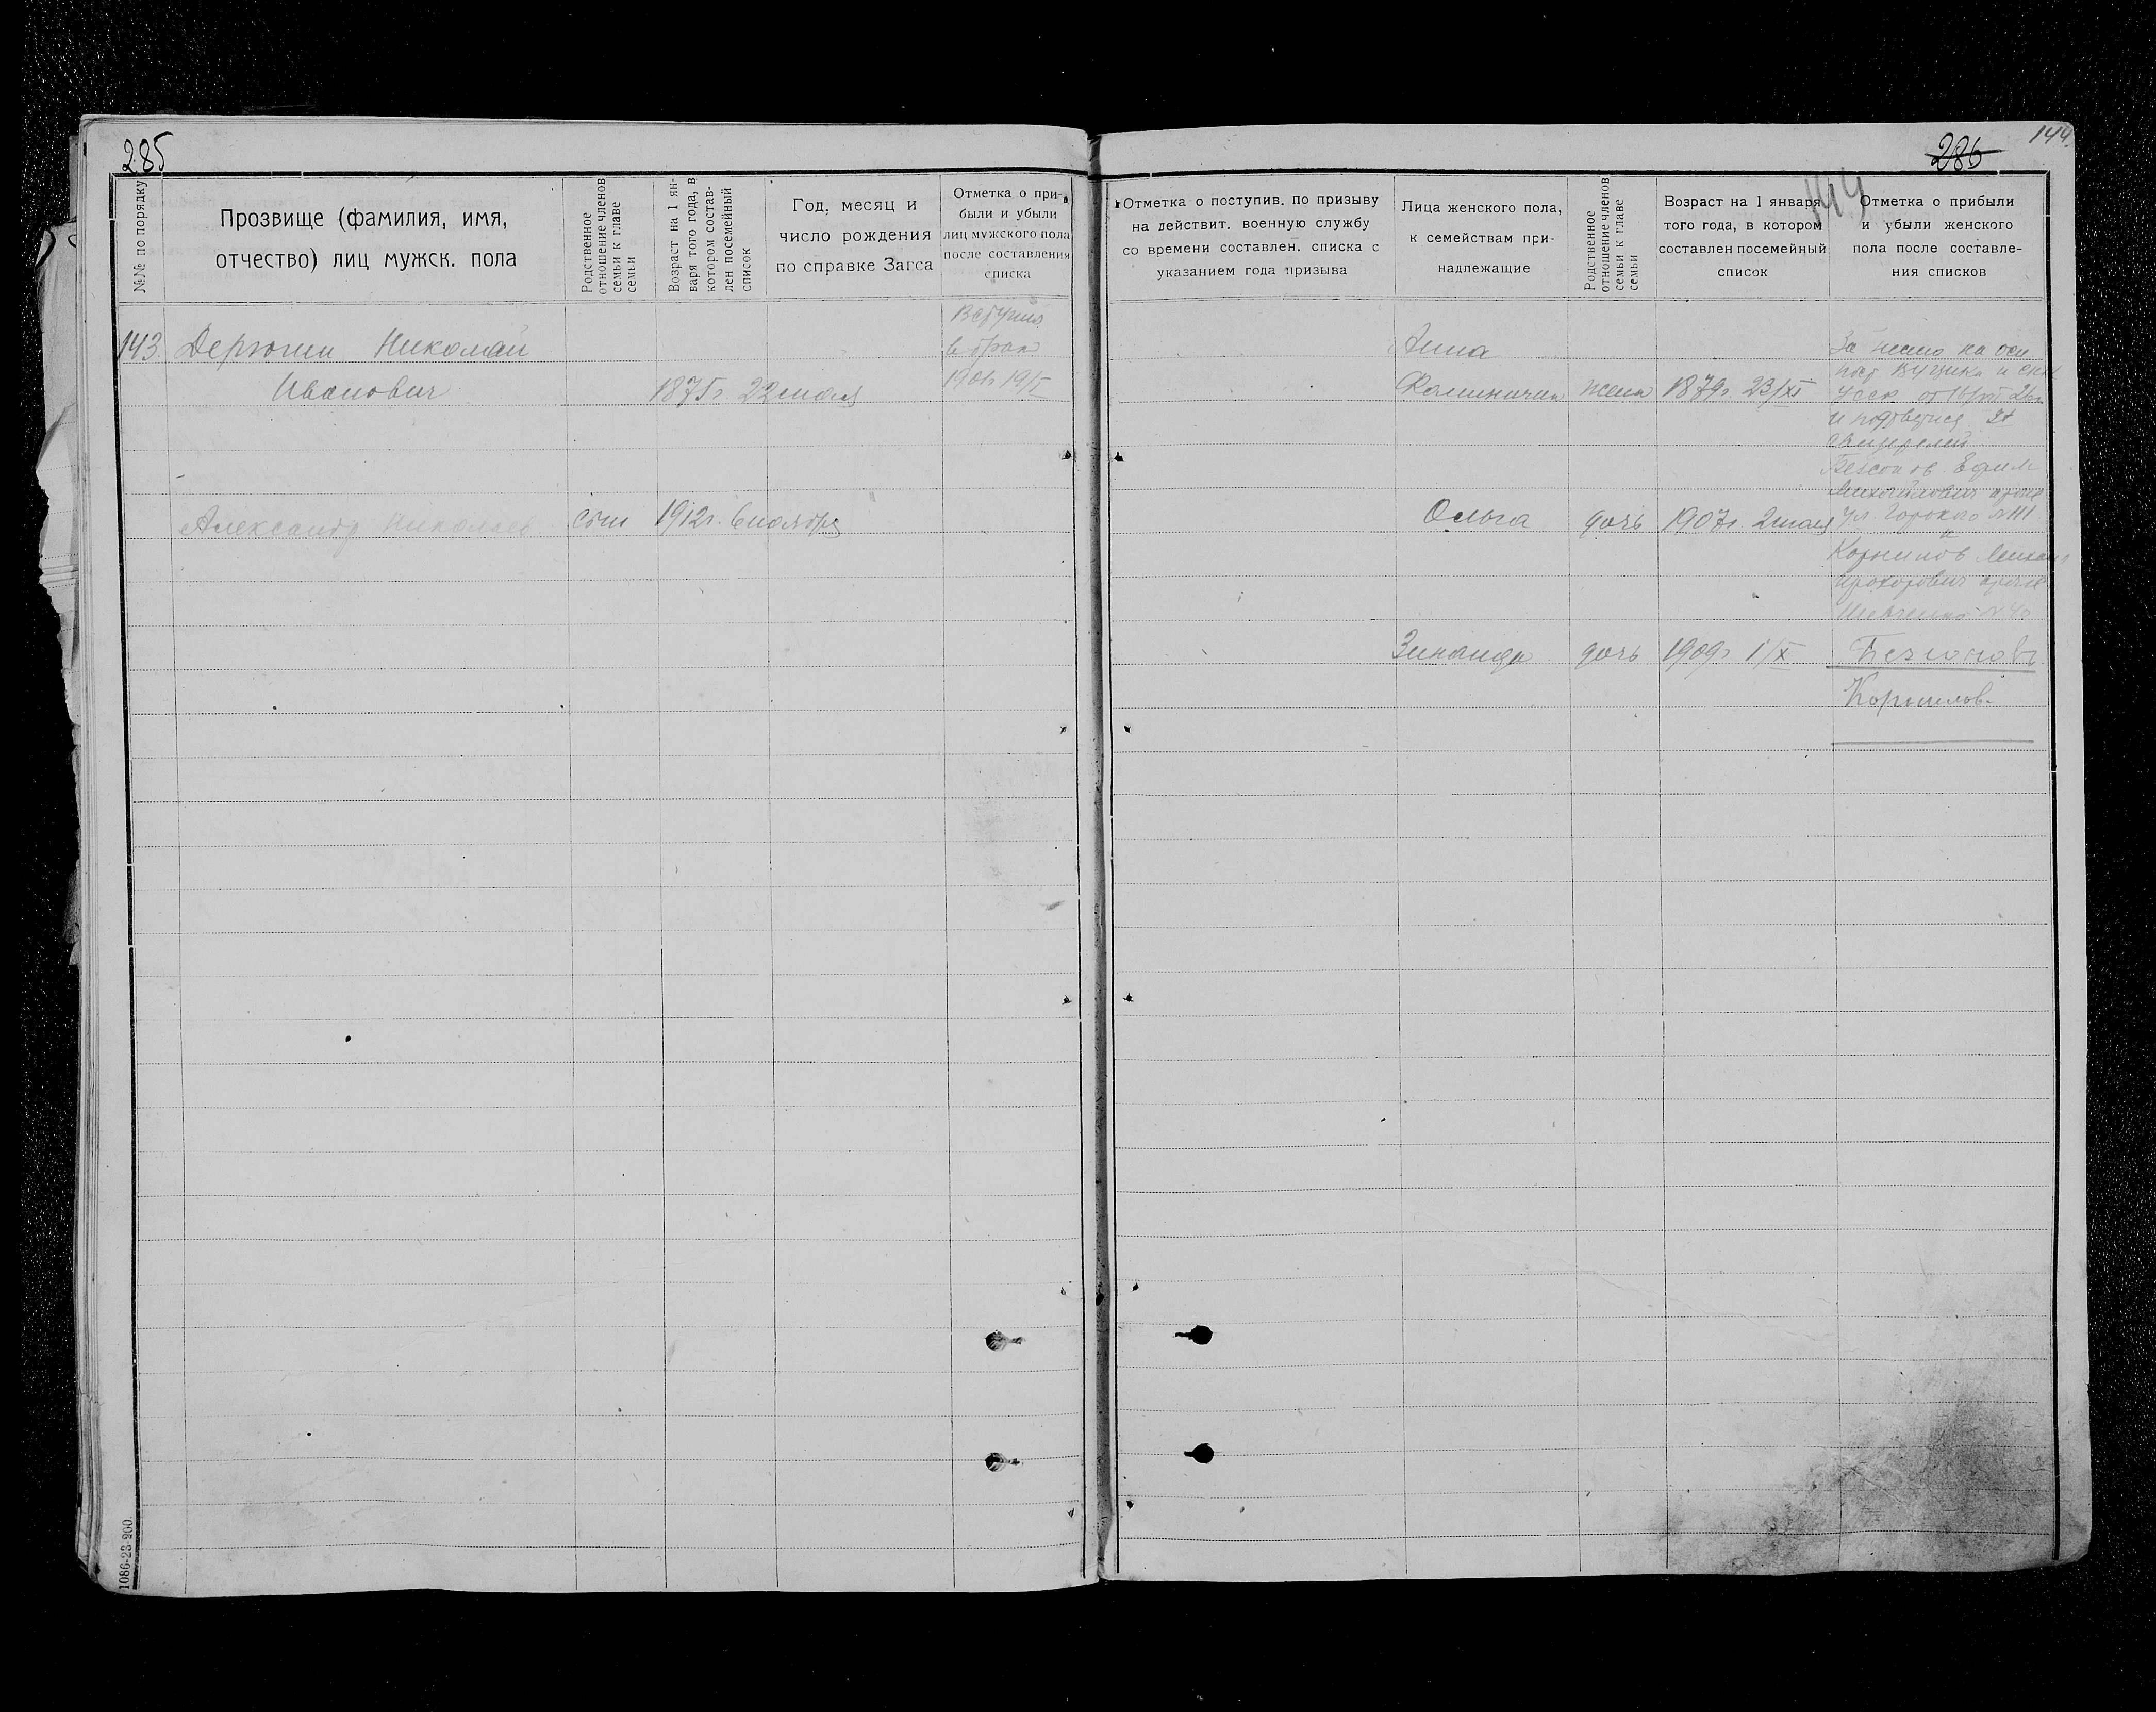 285
№№ по порядку
Прозвище (фамилия, имя,
отчество) лиц мужск. пола
Родственное
отношение членов
семьи к главе
семьи
Возраст на 1 ян-
варя того года, в
котором состав-
лен посемейный
список
Год, месяц и
число рождения
по справке Загса
Отметка о при-
были и убыли
лиц мужского пола
после составления
списка
143 Дерюгин Николай
Иванович 1875г 22 мая
Вступил
в брак
1901г 19/I
Александр Николаев сын 1912г. 6 ноября
1086-23-200.
144.
286
144
Отметка о поступив. по призыву
на действит. военную службу
со времени составлен. списка с
указанием года призыва
Лица женского пола,
к семействам при-
надлежащие
Родственное
отношение членов
семьи к главе
семьи
Возраст на 1 января
того года, в котором
составлен посемейный
список
Отметка о прибыли
и убыли женского
пола после составле-
ния списков
Анна
жена 1879г. 23/XI
Ольга дочь 1907г. 2 мая
Зинаида дочь 1909г 1/X
на осн
пост ВУЦИКа и СНК
УССР от
и
свидетелей
Безсонов Ефим
Михайлович
ул. Горького №111
и
Корнилов Михаил
Прохорович
Шевченко №40
Безсонов
Корнилов